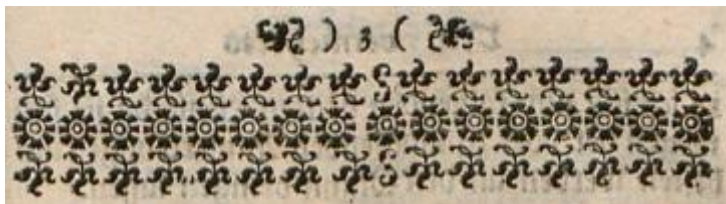 ) 3 (